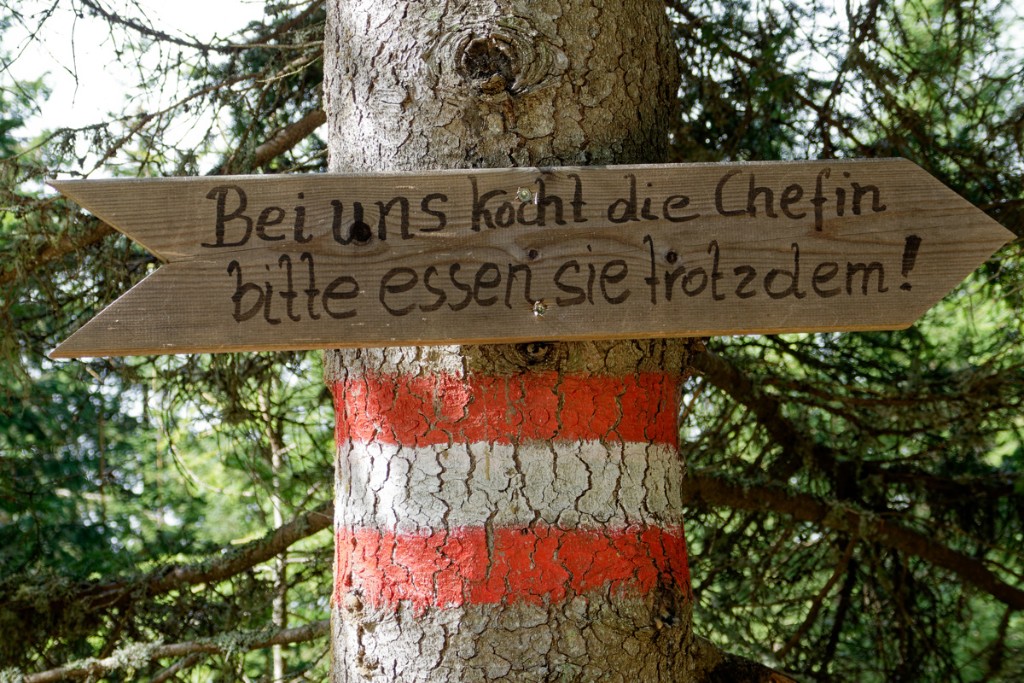 Bei uns kocht die Chefin
bitte essen sie trotzdem!